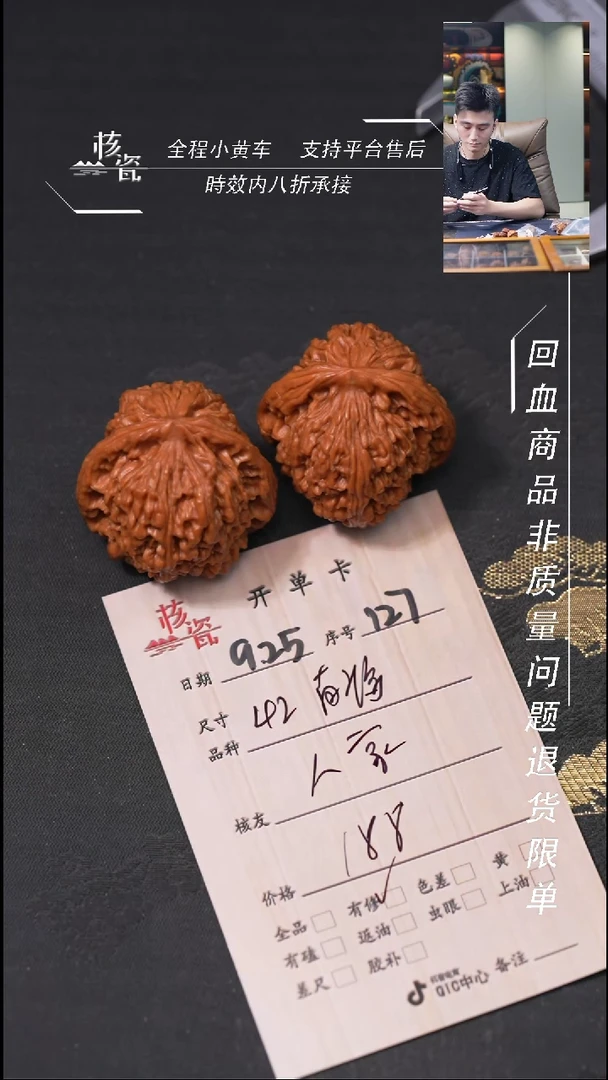 核瓷
全程小黄车 支持平台售后
時效内八折承接
回血商品非质量问题退货限单
核瓷
开单卡
日期 9.25 序号 127
尺寸 42
品种
核友
价格 188
全品 有修 色差 黄
有磕 返油 虫眼 上油
差尺 胶补
抖音电商
QIC中心 备注